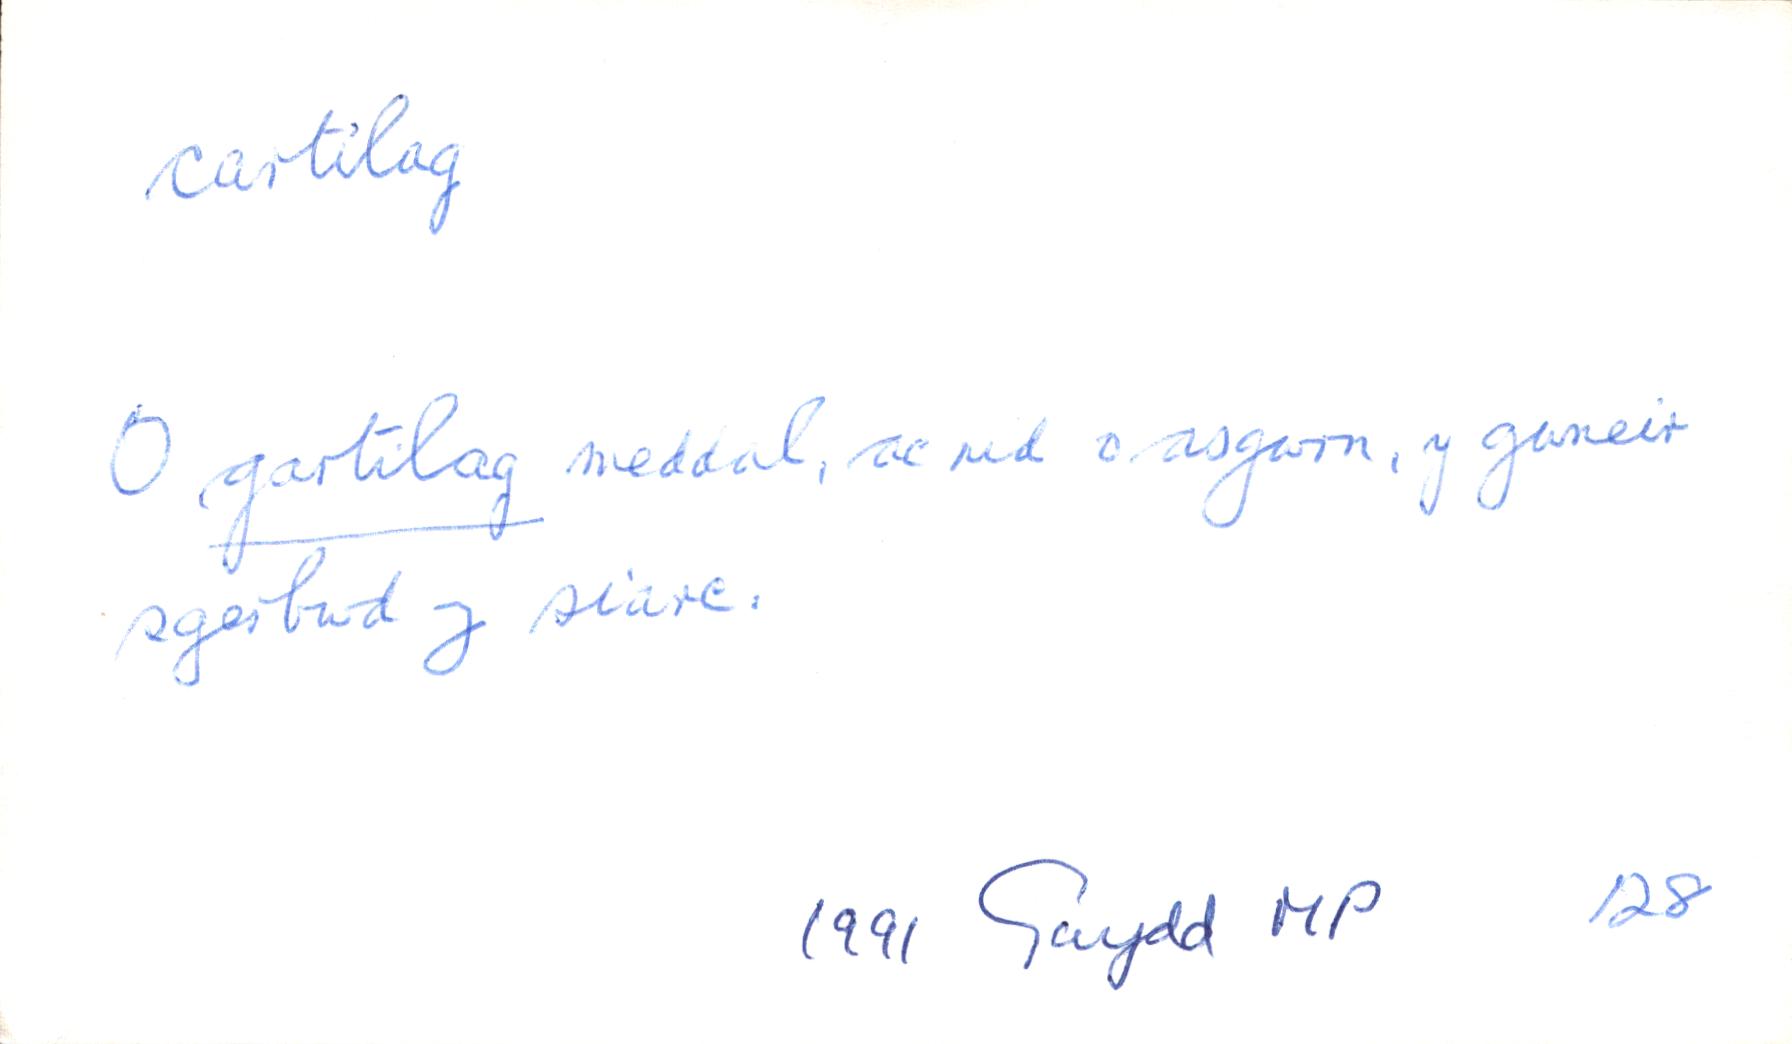 cartilag
O gartilag meddal, ac nid o asgwrn, y gwneir
sgerbwd y siarc.
1991 Gwydd MP 128